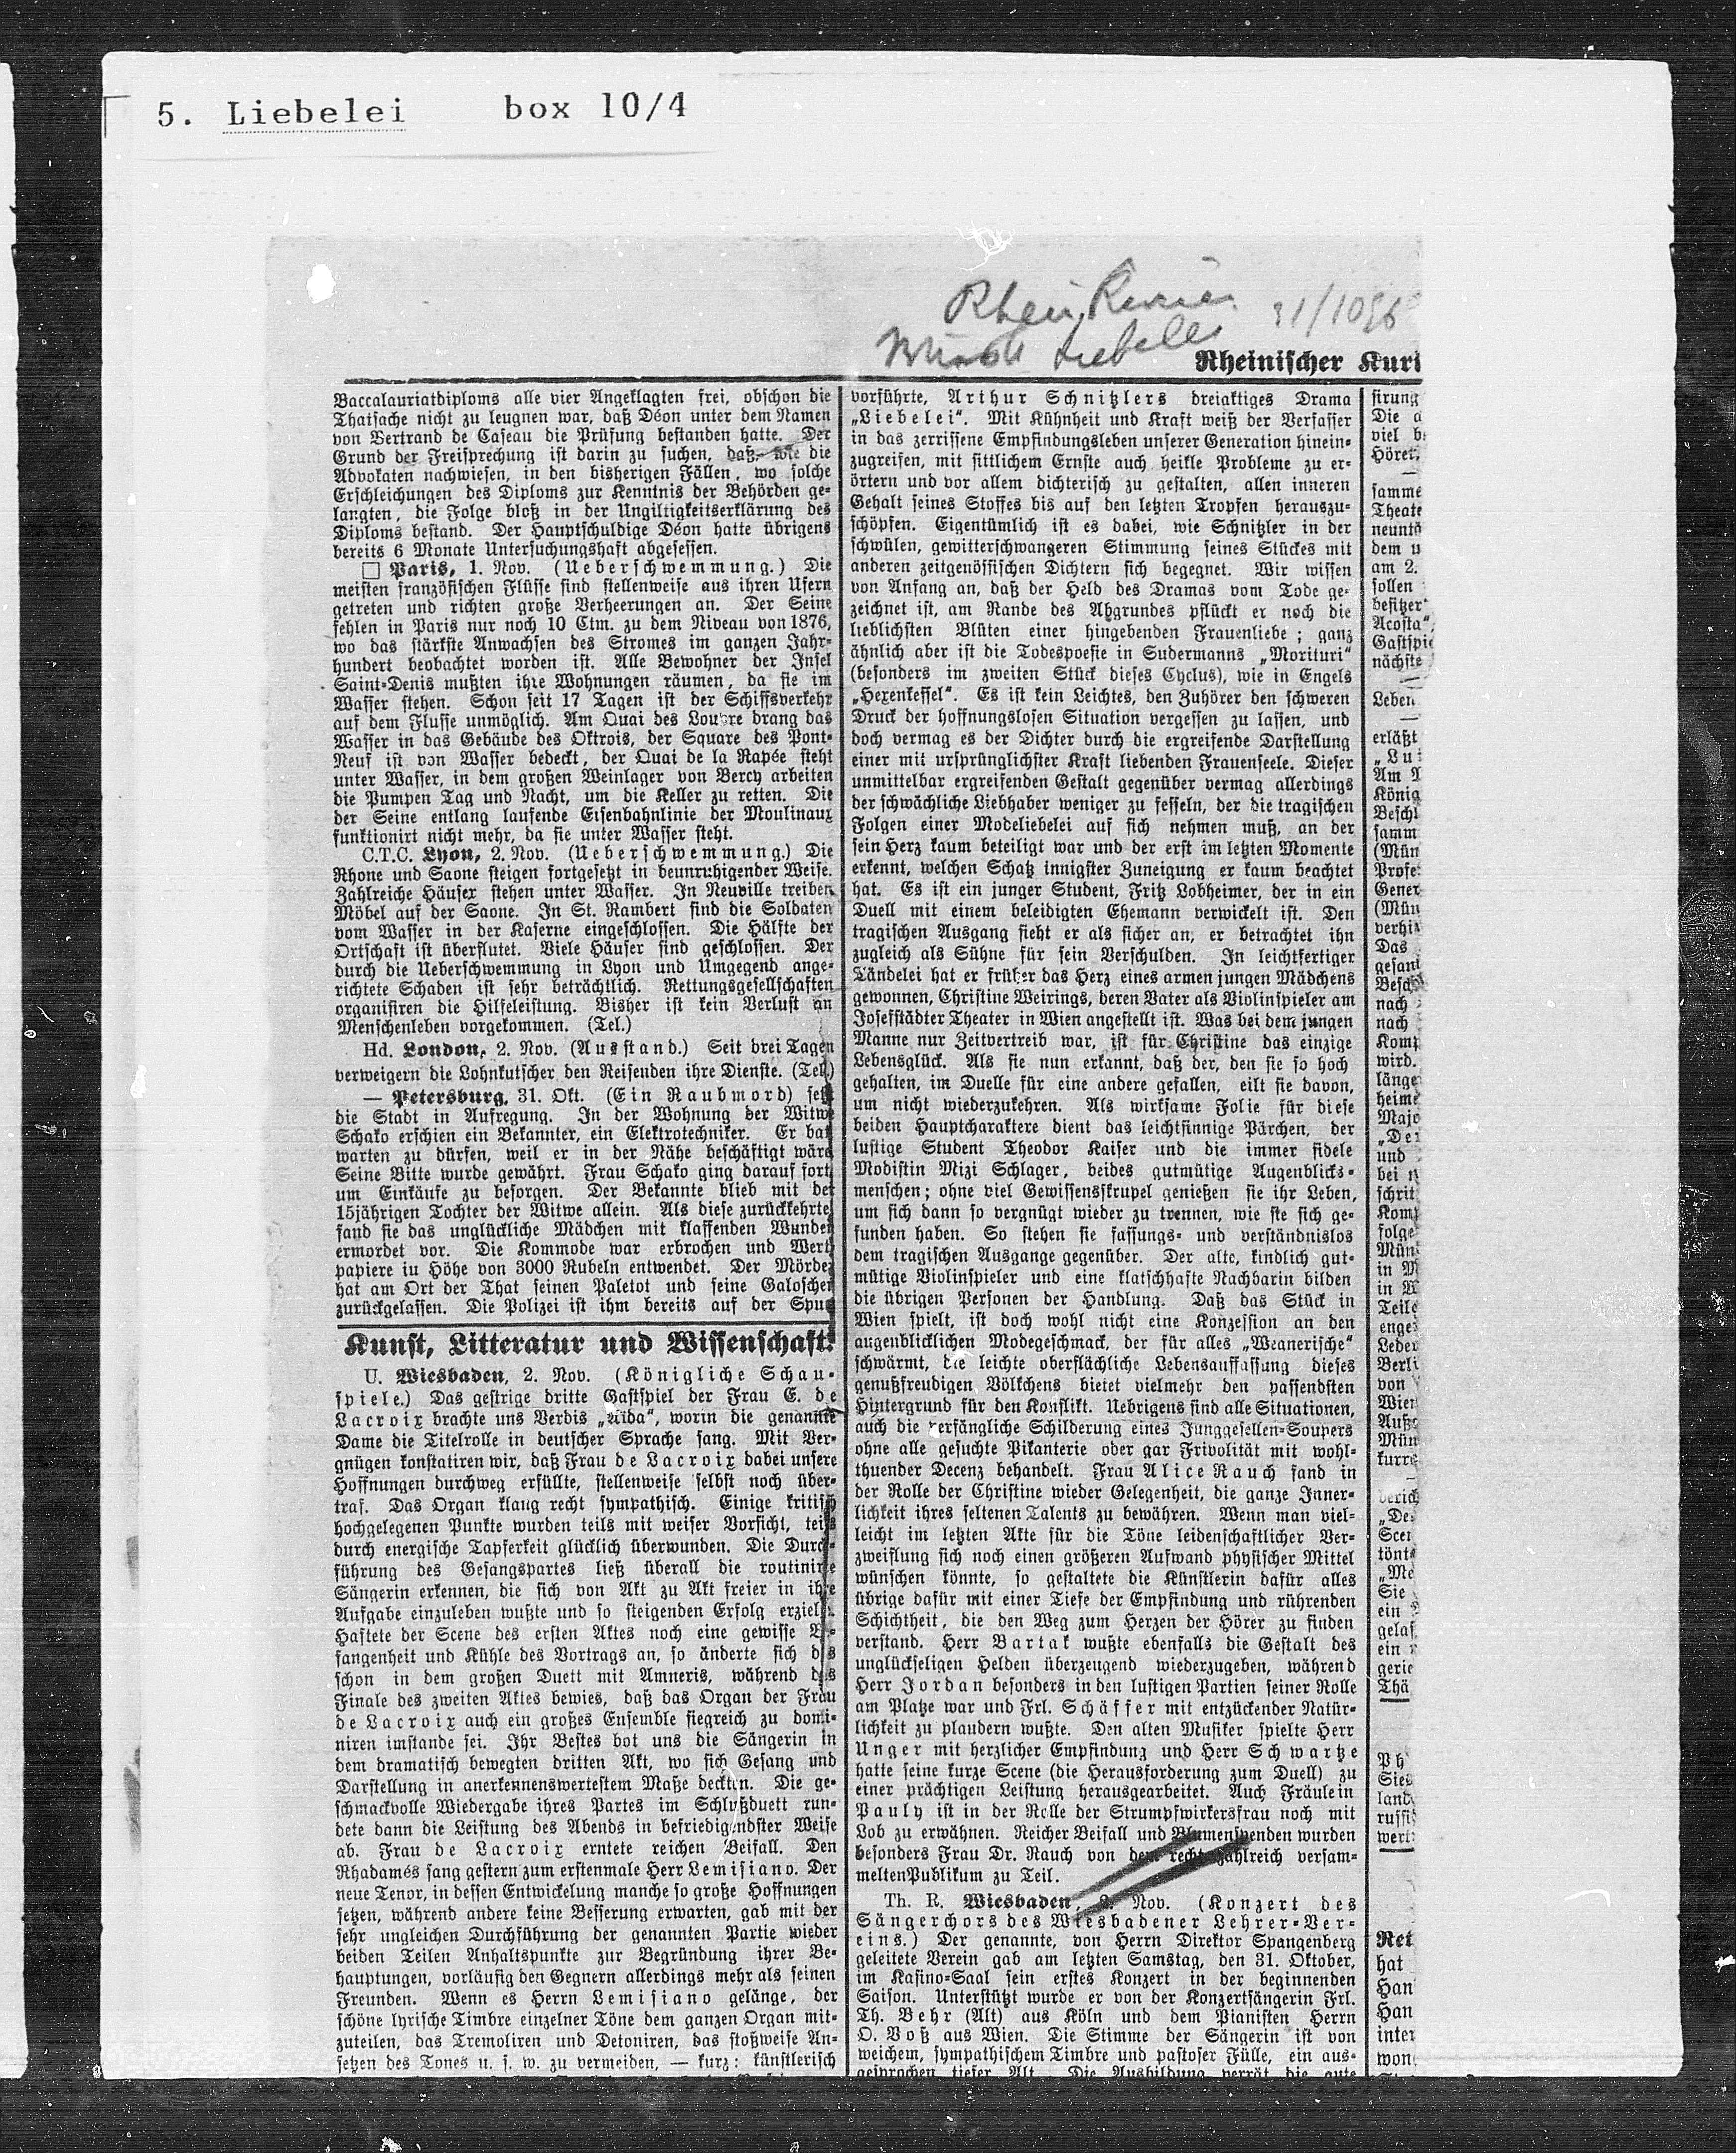 5. Liebelei box 10/4
Rhein. Kurier 31/10 96
Liebelei
Rheinischer Kuri
Baccalauriatdiploms alle vier Angeklagten frei, obschon die
Thatsache nicht zu leugnen war, daß Déon unter dem Namen
von Bertrand de Caseau die Prüfung bestanden hatte. Der
Grund der Freisprechung ist darin zu suchen, daß, wie die
Advokaten nachwiesen, in den bisherigen Fällen, wo solche
Erschleichungen des Diploms zur Kenntnis der Behörden ge-
langten, die Folge bloß in der Ungiltigkeitserklärung des
Diploms bestand. Der Hauptschuldige Déon hatte übrigens
bereits 6 Monate Untersuchungshaft abgesessen.
□ Paris, 1. Nov. (Ueberschwemmung.) Die
meisten französischen Flüsse sind stellenweise aus ihren Ufern
getreten und richten große Verheerungen an. Der Seine
fehlen in Paris nur noch 10 Ctm. zu dem Niveau von 1876,
wo das stärkste Anwachsen des Stromes im ganzen Jahr-
hundert beobachtet worden ist. Alle Bewohner der Insel
Saint-Denis mußten ihre Wohnungen räumen, da sie im
Wasser stehen. Schon seit 17 Tagen ist der Schiffsverkehr
auf dem Flusse unmöglich. Am Quai des Louvre drang das
Wasser in das Gebäude des Oktrois, der Square des Pont-
Neuf ist von Wasser bedeckt, der Quai de la Rapée steht
unter Wasser, in dem großen Weinlager von Bercy arbeiten
die Pumpen Tag und Nacht, um die Keller zu retten. Die
der Seine entlang laufende Eisenbahnlinie der Moulinaux
funktionirt nicht mehr, da sie unter Wasser steht.
C.T.C. Lyon, 2. Nov. (Ueberschwemmung.) Die
Rhone und Saone steigen fortgesetzt in beunruhigender Weise.
Zahlreiche Häuser stehen unter Wasser. In Neuville treiben
Möbel auf der Saone. In St. Rambert sind die Soldaten
vom Wasser in der Kaserne eingeschlossen. Die Hälfte der
Ortschaft ist überflutet. Viele Häuser sind geschlossen. Der
durch die Ueberschwemmung in Lyon und Umgegend ange-
richtete Schaden ist sehr beträchtlich. Rettungsgesellschaften
organisiren die Hilfeleistung. Bisher ist kein Verlust an
Menschenleben vorgekommen. (Tel.)
Hd. London, 2. Nov. (Ausstand.) Seit drei Tagen
verweigern die Lohnkutscher den Reisenden ihre Dienste. (Tel.)
— Petersburg, 31. Okt. (Ein Raubmord) setzt
die Stadt in Aufregung. In der Wohnung der Witwe
Schako erschien ein Bekannter, ein Elektrotechniker. Er bat
warten zu dürfen, weil er in der Nähe beschäftigt wäre
Seine Bitte wurde gewährt. Frau Schako ging darauf fort
um Einkäufe zu besorgen. Der Bekannte blieb mit der
15jährigen Tochter der Witwe allein. Als diese zurückkehrte
fand sie das unglückliche Mädchen mit klaffenden Wunden
ermordet vor. Die Kommode war erbrochen und Wert-
papiere in Höhe von 3000 Rubeln entwendet. Der Mörder
hat am Ort der That seinen Paletot und seine Galoschen
zurückgelassen. Die Polizei ist ihm bereits auf der Spur
Kunst, Litteratur und Wissenschaft.
U. Wiesbaden, 2. Nov. (Königliche Schau-
spiele.) Das gestrige dritte Gastspiel der Frau E. de
Lacroix brachte uns Verdis „Aida“, worin die genannte
Dame die Titelrolle in deutscher Sprache sang. Mit Ver-
gnügen konstatiren wir, daß Frau de Lacroix dabei unsere
Hoffnungen durchweg erfüllte, stellenweise selbst noch über-
traf. Das Organ klang recht sympathisch. Einige kritisch
hochgelegenen Punkte wurden teils mit weiser Vorsicht, teils
durch energische Tapferkeit glücklich überwunden. Die Durch-
führung des Gesangspartes ließ überall die routinirte
Sängerin erkennen, die sich von Akt zu Akt freier in ihre
Aufgabe einzuleben wußte und so steigenden Erfolg erzielte.
Haftete der Scene des ersten Aktes noch eine gewisse Be-
fangenheit und Kühle des Vortrags an, so änderte sich das
schon in dem großen Duett mit Amneris, während das
Finale des zweiten Aktes bewies, daß das Organ der Frau
de Lacroix auch ein großes Ensemble siegreich zu domi-
niren imstande sei. Ihr Bestes bot uns die Sängerin in
dem dramatisch bewegten dritten Akt, wo sich Gesang und
Darstellung in anerkennenswertestem Maße deckten. Die ge-
schmackvolle Wiedergabe ihres Partes im Schlußduett run-
dete dann die Leistung des Abends in befriedigendster Weise
ab. Frau de Lacroix erntete reichen Beifall. Den
Rhadamés sang gestern zum erstenmale Herr Lemisiano. Der
neue Tenor, in dessen Entwickelung manche so große Hoffnungen
setzen, während andere keine Besserung erwarten, gab mit der
sehr ungleichen Durchführung der genannten Partie wieder
beiden Teilen Anhaltspunkte zur Begründung ihrer Be-
hauptungen, vorläufig den Gegnern allerdings mehr als seinen
Freunden. Wenn es Herrn Lemisiano gelänge, der
schöne lyrische Timbre einzelner Töne dem ganzen Organ mit-
zuteilen, das Tremoliren und Detoniren, das stoßweise An-
setzen des Tones u. s. w. zu vermeiden, — kurz: künstlerisch
vorführte, Arthur Schnitzlers dreiaktiges Drama
„Liebelei“. Mit Kühnheit und Kraft weiß der Verfasser
in das zerrissene Empfindungsleben unserer Generation hinein-
zugreifen, mit sittlichem Ernste auch heikle Probleme zu er-
örtern und vor allem dichterisch zu gestalten, allen inneren
Gehalt seines Stoffes bis auf den letzten Tropfen herauszu-
schöpfen. Eigentümlich ist es dabei, wie Schnitzler in der
schwülen, gewitterschwangeren Stimmung seines Stückes mit
anderen zeitgenössischen Dichtern sich begegnet. Wir wissen
von Anfang an, daß der Held des Dramas vom Tode ge-
zeichnet ist, am Rande des Abgrundes pflückt er noch die
lieblichsten Blüten einer hingebenden Frauenliebe; ganz
ähnlich aber ist die Todespoesie in Sudermanns „Morituri“
(besonders im zweiten Stück dieses Cyclus), wie in Engels
„Hexenkessel“. Es ist kein Leichtes, den Zuhörer den schweren
Druck der hoffnungslosen Situation vergessen zu lassen, und
doch vermag es der Dichter durch die ergreifende Darstellung
einer mit ursprünglichster Kraft liebenden Frauenseele. Dieser
unmittelbar ergreifenden Gestalt gegenüber vermag allerdings
der schwächliche Liebhaber weniger zu fesseln, der die tragischen
Folgen einer Modeliebelei auf sich nehmen muß, an der
sein Herz kaum beteiligt war und der erst im letzten Momente
erkennt, welchen Schatz innigster Zuneigung er kaum beachtet
hat. Es ist ein junger Student, Fritz Lobheimer, der in ein
Duell mit einem beleidigten Ehemann verwickelt ist. Den
tragischen Ausgang sieht er als sicher an, er betrachtet ihn
zugleich als Sühne für sein Verschulden. In leichtfertiger
Tändelei hat er früher das Herz eines armen jungen Mädchens
gewonnen, Christine Weirings, deren Vater als Violinspieler am
Josefstädter Theater in Wien angestellt ist. Was bei dem jungen
Manne nur Zeitvertreib war, ist für Christine das einzige
Lebensglück. Als sie nun erkannt, daß der, den sie so hoch
gehalten, im Duelle für eine andere gefallen, eilt sie davon,
um nicht wiederzukehren. Als wirksame Folie für diese
beiden Hauptcharaktere dient das leichtsinnige Pärchen, der
lustige Student Theodor Kaiser und die immer fidele
Modistin Mizi Schlager, beides gutmütige Augenblicks-
menschen; ohne viel Gewissensskrupel genießen sie ihr Leben,
um sich dann so vergnügt wieder zu trennen, wie sie sich ge-
funden haben. So stehen sie fassungs- und verständnislos
dem tragischen Ausgange gegenüber. Der alte, kindlich gut-
mütige Violinspieler und eine klatschhafte Nachbarin bilden
die übrigen Personen der Handlung. Daß das Stück in
Wien spielt, ist doch wohl nicht eine Konzession an den
augenblicklichen Modegeschmack, der für alles „Weanerische“
schwärmt, die leichte oberflächliche Lebensauffassung dieses
genußfreudigen Völkchens bietet vielmehr den passendsten
Hintergrund für den Konflikt. Uebrigens sind alle Situationen,
auch die verfängliche Schilderung eines Junggesellen-Soupers
ohne alle gesuchte Pikanterie oder gar Frivolität mit wohl-
thuender Decenz behandelt. Frau Alice Rauch fand in
der Rolle der Christine wieder Gelegenheit, die ganze Inner-
lichkeit ihres seltenen Talents zu bewähren. Wenn man viel-
leicht im letzten Akte für die Töne leidenschaftlicher Ver-
zweiflung sich noch einen größeren Aufwand physischer Mittel
wünschen könnte, so gestaltete die Künstlerin dafür alles
übrige dafür mit einer Tiefe der Empfindung und rührenden
Schichtheit, die den Weg zum Herzen der Hörer zu finden
verstand. Herr Bartak wußte ebenfalls die Gestalt des
unglückseligen Helden überzeugend wiederzugeben, während
Herr Jordan besonders in den lustigen Partien seiner Rolle
am Platze war und Frl. Schäffer mit entzückender Natür-
lichkeit zu plaudern wußte. Den alten Musiker spielte Herr
Unger mit herzlicher Empfindung und Herr Schwartze
hatte seine kurze Scene (die Herausforderung zum Duell) zu
einer prächtigen Leistung herausgearbeitet. Auch Fräulein
Pauly ist in der Rolle der Strumpfwirkersfrau noch mit
Lob zu erwähnen. Reicher Beifall und Blumenspenden wurden
besonders Frau Dr. Rauch von dem recht zahlreich versam-
melten Publikum zu Teil.
Th. R. Wiesbaden, 2. Nov. (Konzert des
Sängerchors des Wiesbadener Lehrer-Ver-
eins.) Der genannte, von Herrn Direktor Spangenberg
geleitete Verein gab am letzten Samstag, den 31. Oktober,
im Kasino-Saal sein erstes Konzert in der beginnenden
Saison. Unterstützt wurde er von der Konzertsängerin Frl.
Th. Behr (Alt) aus Köln und dem Pianisten Herrn
O. Voß aus Wien. Die Stimme der Sängerin ist von
weichem, sympathischem Timbre und pastoser Fülle, ein aus-
gesprochen tiefer Alt. Die Ausbildung verrät die gute
sirung
Die a
viel b
Höret,
samme
Theate
neuntä
dem u
am 2.
sollen
besitzer
Acosta“,
Gastspie
nächste
Leben
erläßt
Am A
König
Besch
samm
(Mün
Profe
Gener
(Mün
verhi
Das
gesant
Besch
nach
nach
Komp
wird.
länge
heime
Majo
„De
und
bei n
schrit
Komp
folge
Mün
in M
in W
Teile
enge
Leder
Berli
von
Wien
Auß
Mün
kurre
berich
„De
Scen
tönte
„Me
Sie
ein
gelas
ein
gerie
Thä
Ph
Sie
land
russi
wert
Ret
hat
Han
Han
inter
won